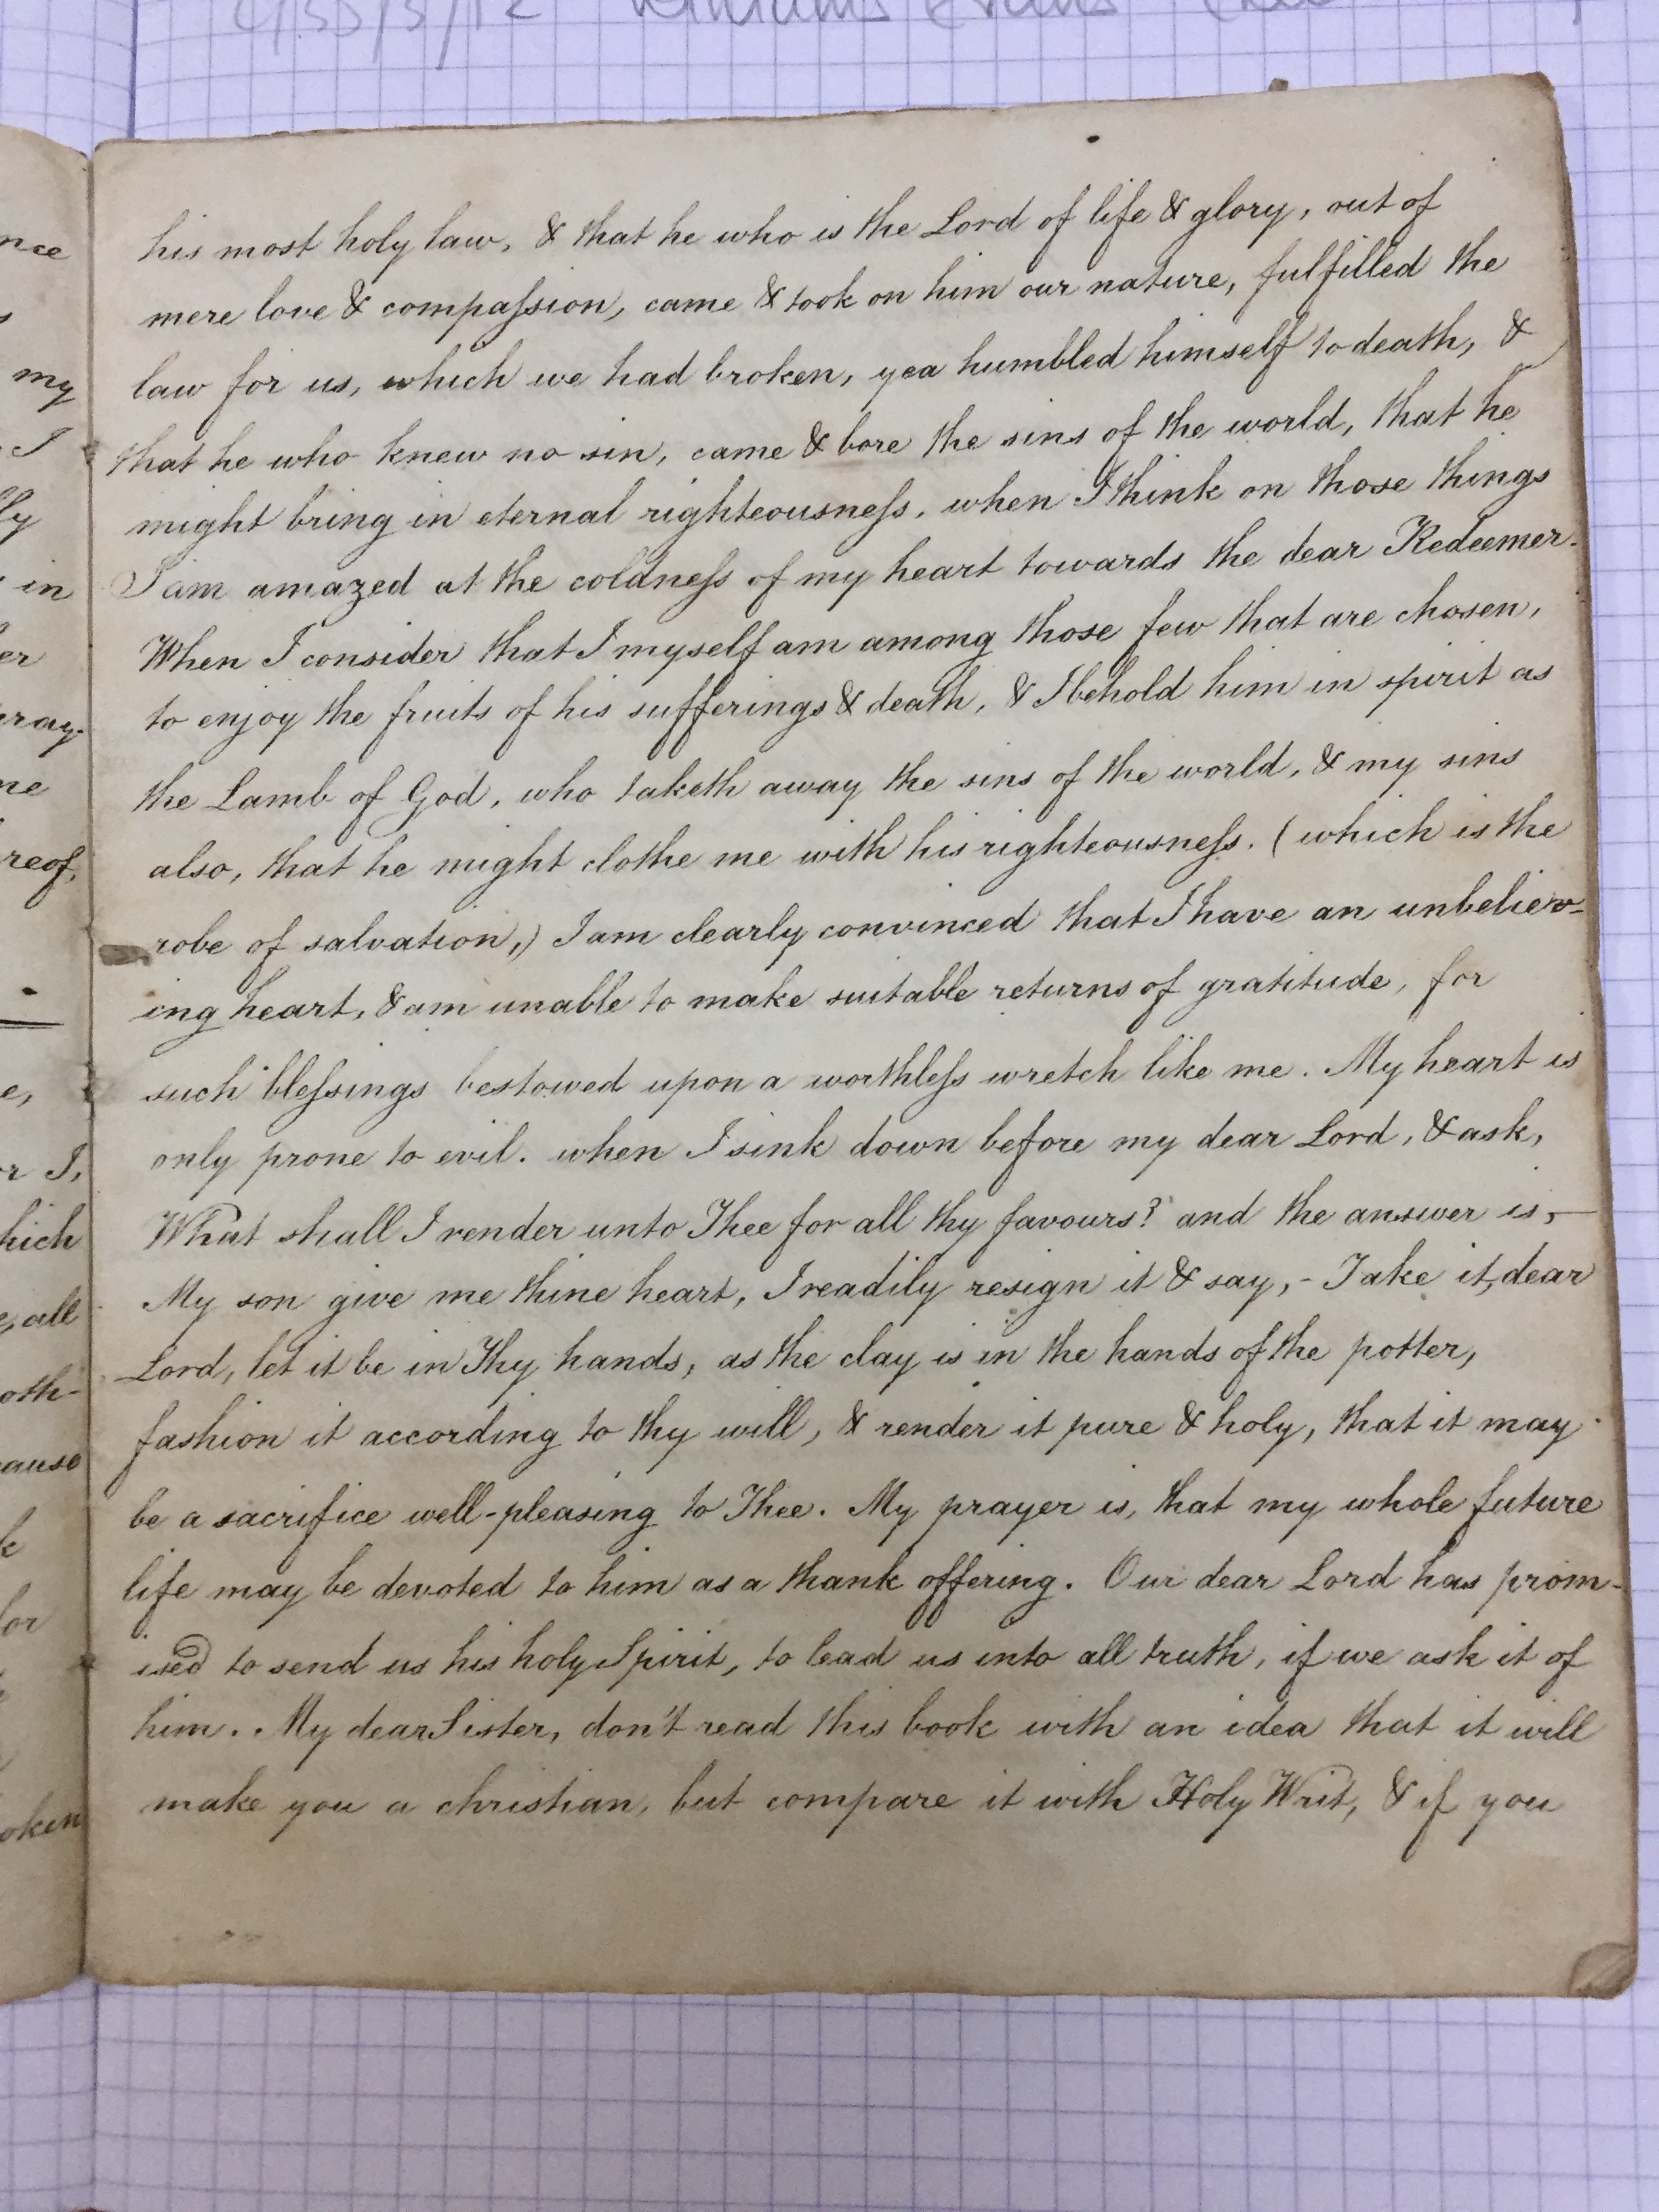 his most holy law, & that he who is the Lord of life & glory, out of
mere love & compaſsion, came & took on him our nature, fulfilled the
law for us, which we had broken, yea humbled himself to death, &
that he who knew no sin, came & bore the sins of the world, that he
might bring in eternal righteousneſs. when I think on those things
I am amazed at the coldneſs of my heart towards the dear Redeemer.
When I consider that I myself am among those few that are chosen,
to enjoy the fruits of his sufferings & death, & I behold him in spirit as
the Lamb of God, who taketh away the sins of the world, & my sins
also, that he might clothe me with his righteousneſs. (which is the
robe of salvation,) I am clearly convinced that I have an unbeliev-
ing heart, & am unable to make suitable returns of gratitude, for
such bleſsings bestowed upon a worthleſs wretch like me. My heart is
only prone to evil. when I sink down before my dear Lord, & ask,
What shall I render unto Thee for all thy favours? and the answer is,—
My son give me thine heart, I readily resign it & say,- Take it, dear
Lord, let it be in Thy hands, as the clay is in the hands of the potter,
fashion it according to thy will, & render it pure & holy, that it may
be a sacrifice well-pleasing to Thee. My prayer is, that my whole future
life may be devoted to him as a thank offering. Our dear Lord has prom-
ised to send us his holy Spirit, to lead us into all truth, if we ask it of
him. My dear Sister, don't read this book with an idea that it will
make you a christian, but compare it with Holy Writ, & if you
my
I
in
me
reof,
or I,
all
oth-